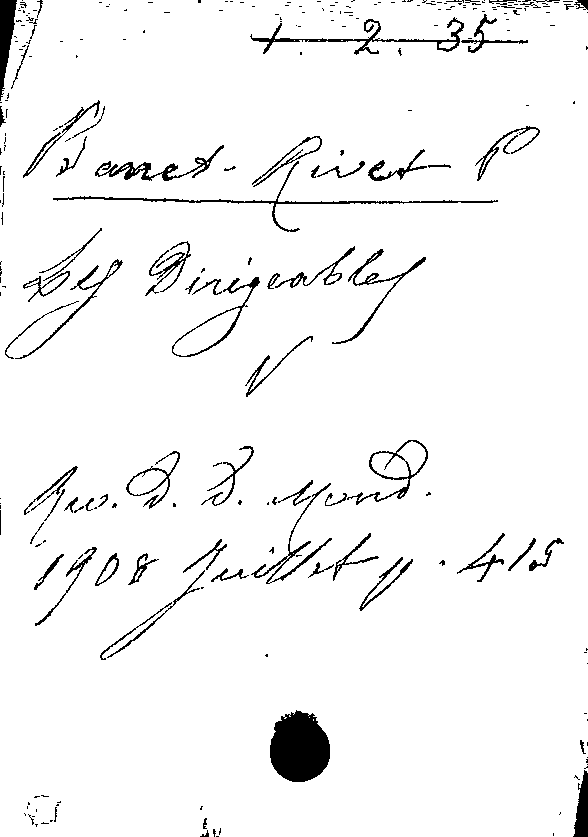 1. 2. 35
Banet-Rivet P
Les Dirigeables
V
Rev. D. D. Mond.
1908 Juillet p. 415